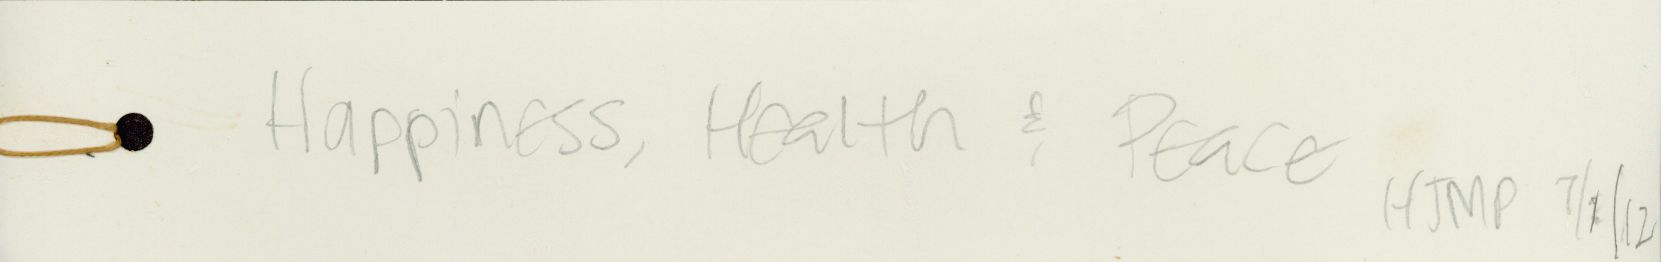 Happiness, Health & Peace
HJMP 7/1/12